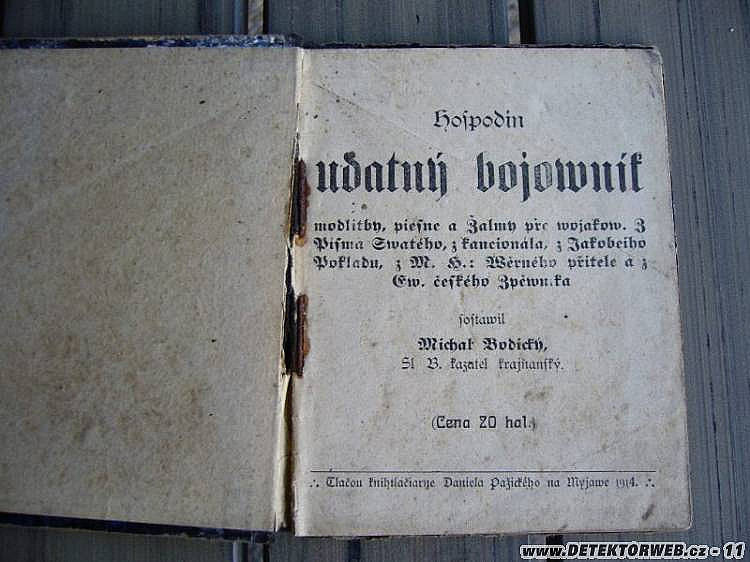 Hospodin
udatný bojowník
modlitby, piesne a Žalmy pře wojakow. Z
Písma Swatého, z kancionála, z Jakobeiho
Pokladu, z M. H.: Wěrného přítele a z
Ew. českého Zpěwníka
sostawil
Michal Bodický,
Sl. B. kazatel krajňanský.
(Cena 20 hal.)
.·. Tlačou knihtlačiarne Daniela Pažického na Myjawe 1914. .·.
www.DETEKTORWEB.cz - 11